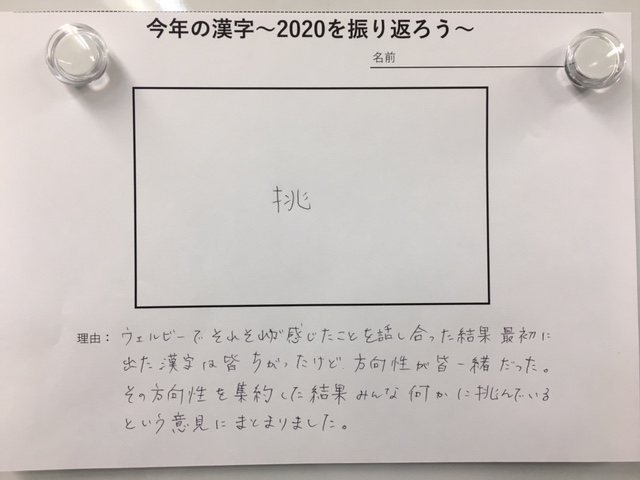 今年の漢字~2020を振り返ろう~
名前
挑
理由: ウェルビーでそれぞれが感じたことを話し合った結果 最初に
出た漢字は皆ちがったけど、方向性が皆一緒だった。
その方向性を集約した結果みんな何かに挑んでいる
という意見にまとまりました。